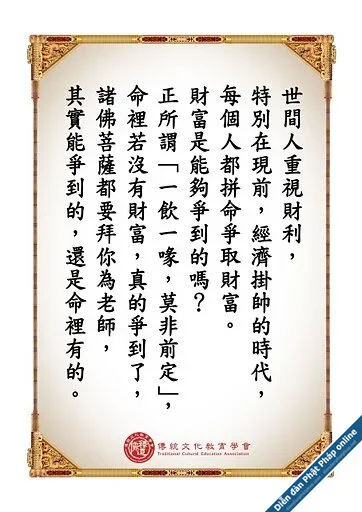 世間人重視財利，
特別在現前，經濟掛帥的時代，
每個人都拼命爭取財富。
財富是能夠爭到的嗎？
正所謂「一飲一喙，莫非前定」，
命裡若沒有財富，真的爭到了，
諸佛菩薩都要拜你為老師，
其實能爭到的，還是命裡有的。
傳統文化教育學會
Traditional Cultural Education Association
Diễn đàn Phật Pháp online